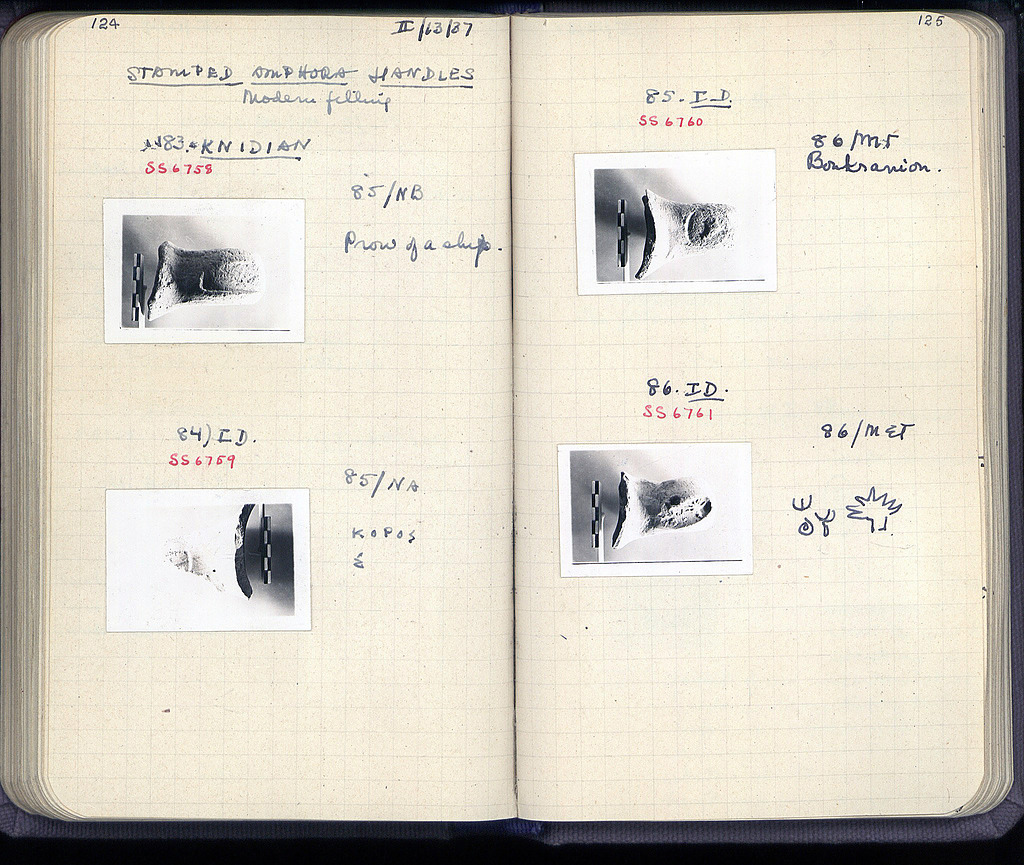 124
II/13/37
STAMPED AMPHORA HANDLES
Modern filling
83. KNIDIAN
SS 6758
85/NB
Prow of a ship.
84) ID.
SS 6759
85/NA
ΚΟΡΟς
Σ
125
85. ID.
SS 6760
86/ΜΓ
Boukranion.
86. ID.
SS 6761
86/ΜΣΤ